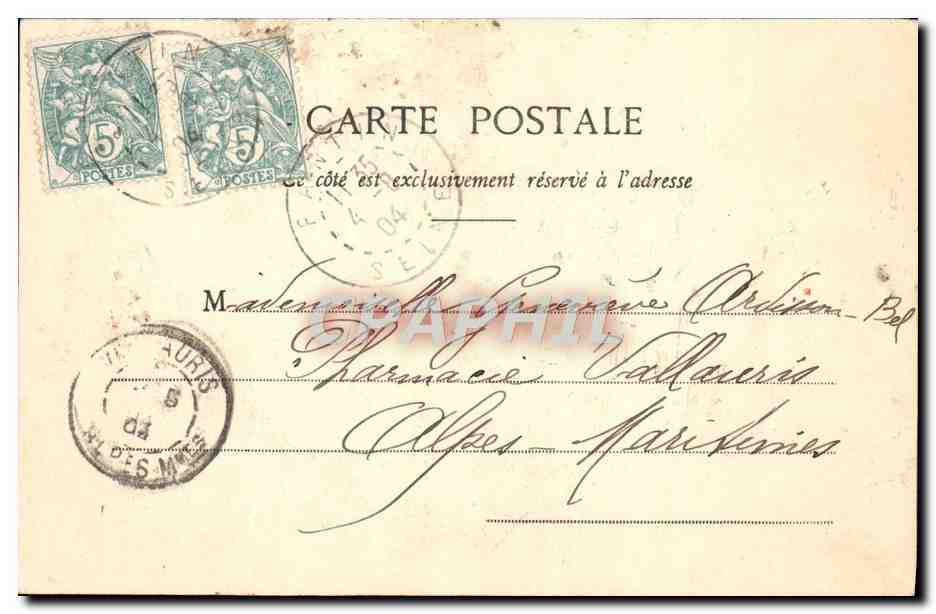 5 5
POSTES POSTES
CARTE POSTALE
Ce côté est exclusivement réservé à l'adresse
PANTIN
35
4
04
SEINE
Mademoiselle Geneviève Ardisson-Bel
Pharmacie Vallauris
Alpes-Maritimes
VALLAURIS
5
04
ALPES-MMES
CPAPHIL